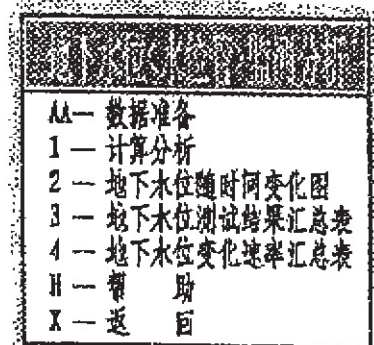 AA— 数据准备
1 — 计算分析
2 — 地下水位随时间变化图
3 — 地下水位测试结果汇总表
4 — 地下水位变化速率汇总表
H — 帮 助
X — 返 回